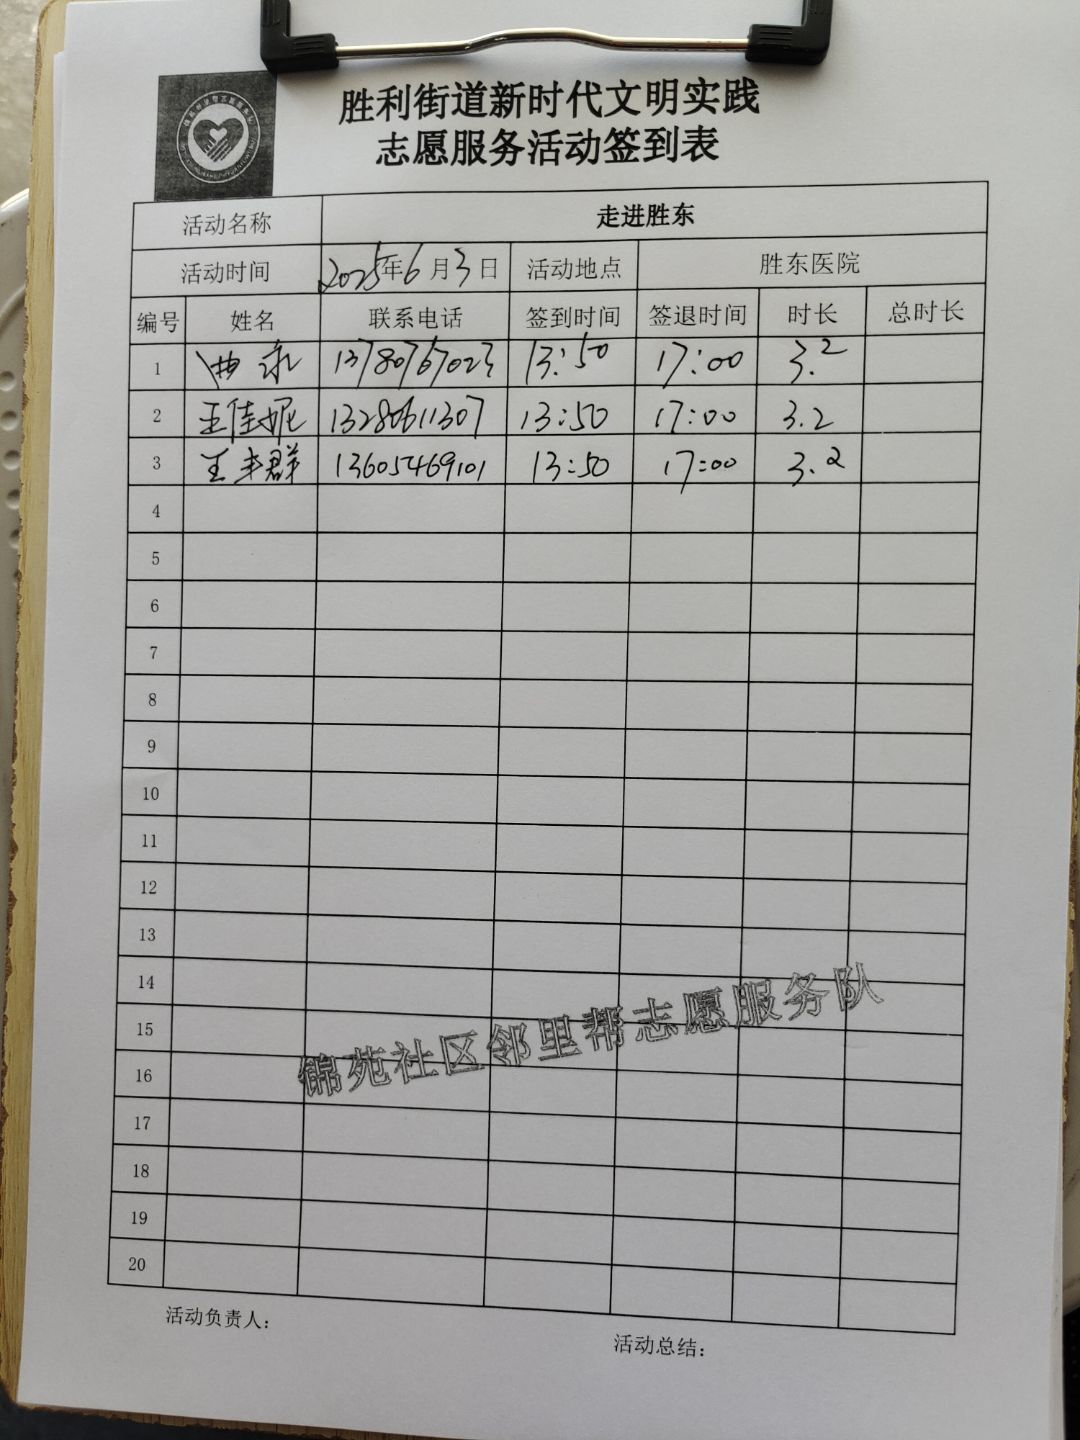 胜利街道新时代文明实践
志愿服务活动签到表
活动名称 走进胜东
活动时间 2025年6月3日 活动地点 胜东医院
编号 姓名 联系电话 签到时间 签退时间 时长 总时长
1 13780767023 13:50 17:00 3.2
2 王佳妮 13280611307 13:50 17:00 3.2
3 王丰群 13605469101 13:50 17:00 3.2
4
5
6
7
8
9
10
11
12
13
14
15
16
17
18
19
20
锦苑社区邻里帮志愿服务队
活动负责人：
活动总结：